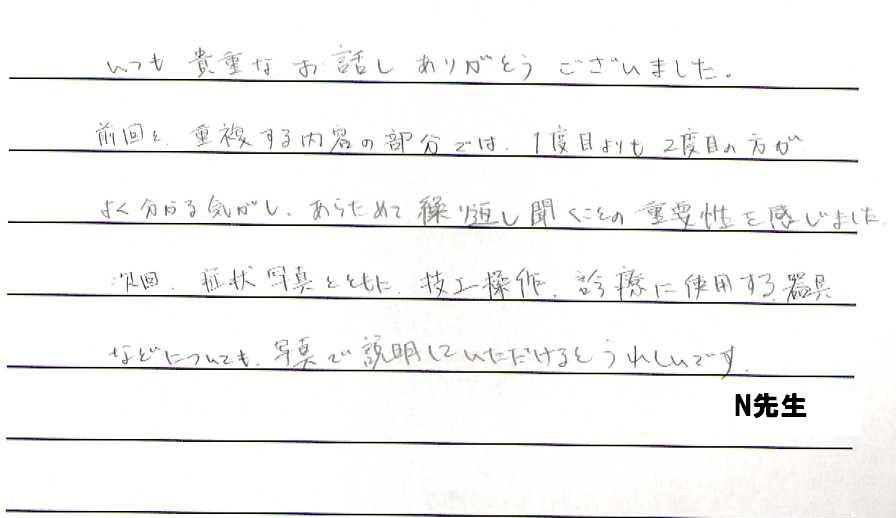 いつも貴重なお話しありがとうございました。
前回と、重複する内容の部分では、1度目よりも2度目の方が
よく分かる気がし、あらためて繰り返し聞くことの重要性を感じました。
次回、症状写真とともに、技工操作、診療に使用する器具
などについても、写真で説明していただけるとうれしいです。
N先生